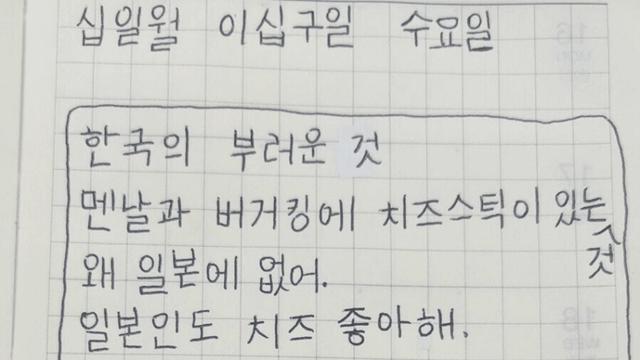 십일월 이십구일 수요일
한국의 부러운 것
멘날과 버거킹에 치즈스틱이 있는 것
왜 일본에 없어.
일본인도 치즈 좋아해.